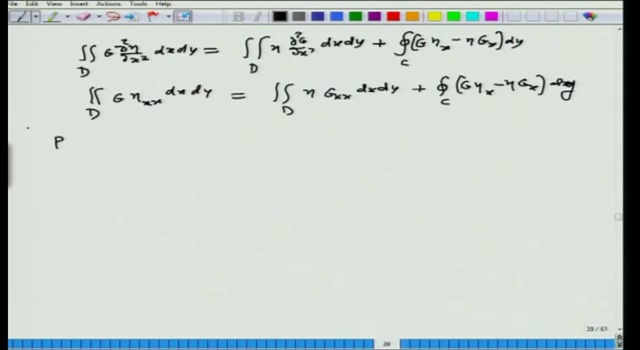 File Edit View Insert Actions Tools Help
∬_D G ∂²η/∂x² dxdy = ∬_D η ∂²G/∂x² dxdy + ∮_C (Gη_x − ηG_x) dy
∬_D G η_xx dxdy = ∬_D η G_xx dxdy + ∮_C (Gη_x − ηG_x) dy
P
39 / 61
39